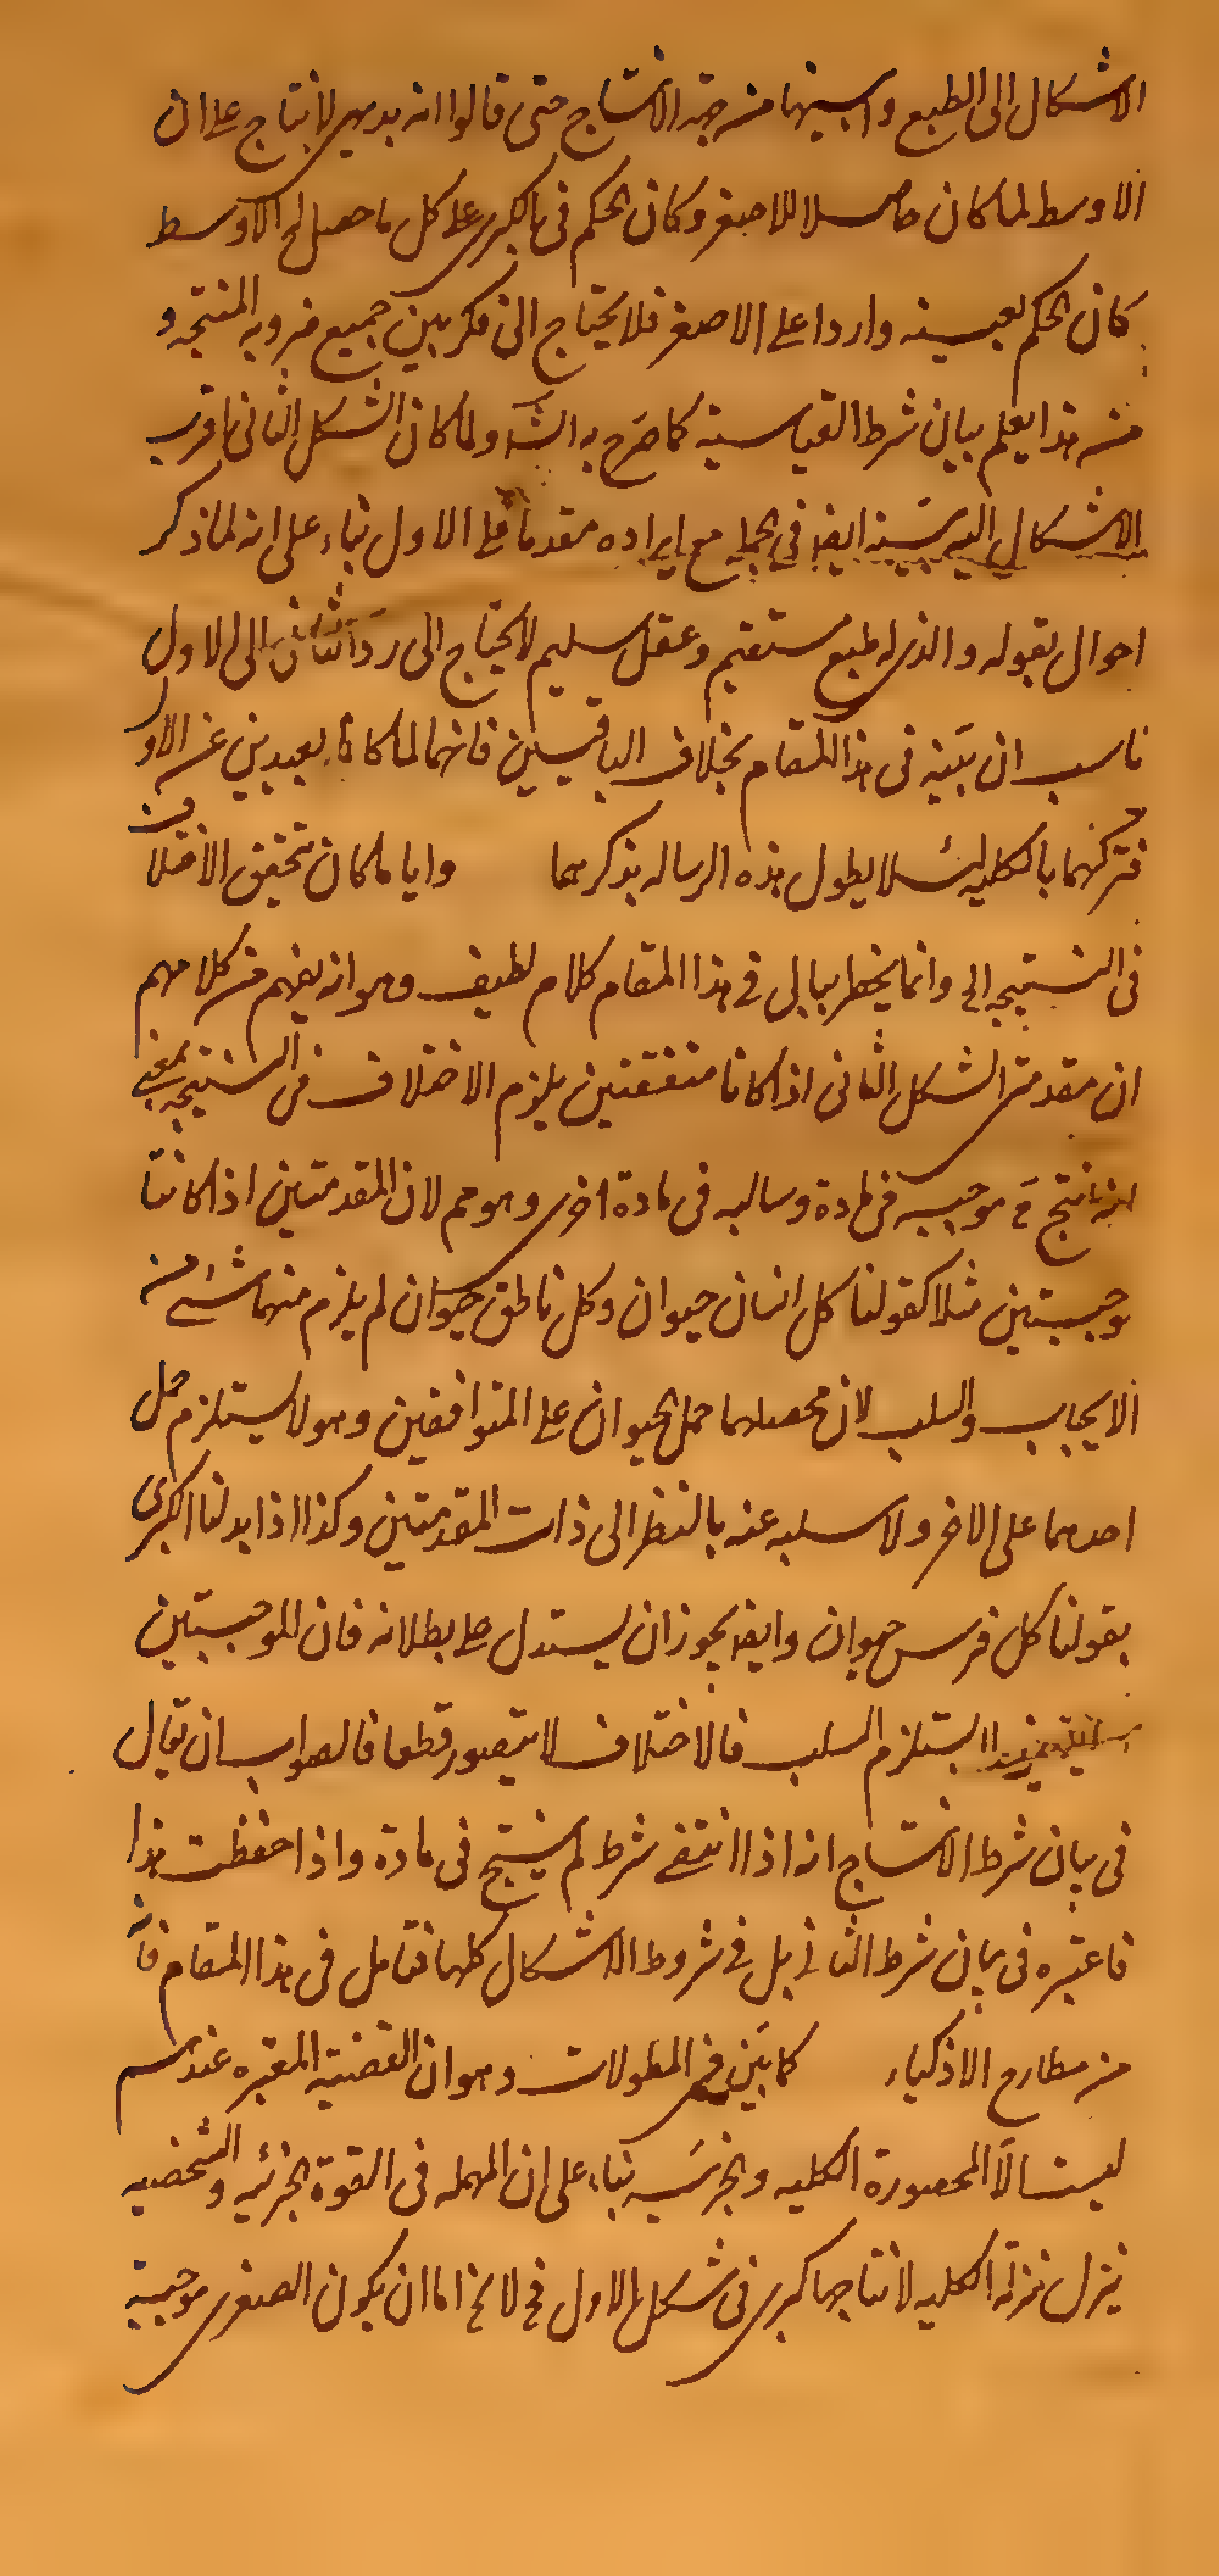 الاشكال الى الطبع واسبقها من جهة الانتاج حتى قالوا انه بديهى الانتاج على ان
الاوسط لما كان حاصلا للاصغر وكان الحكم فى الكبرى على كل ما حصل له الاوسط
كان الحكم بعينه واردا على الاصغر فلا يحتاج الى فكر بين جميع ضروبه المنتجة و
من هذا يعلم بيان شرط القياسية كما صرح به الش ولما كان الشكل الثانى اقرب
الاشكال اليه بينه ايضا فى الجملة مع ايراده مقدما على الاول بناء على انه لما ذكر
احوال بقوله والذى له طبع مستقيم وعقل سليم لا يحتاج الى رد الثانى الى الاول
ناسب ان بينه فى هذا المقام بخلاف الباقيين فانهما لما كانا بعيدين عن الاول
فتركهما بالكلية لئلا يطول هذه الرسالة بذكرهما وايا ما كان تحقق الاختلاف
فى النتيجة الى وانما يخطر ببالى فى هذا المقام كلام لطيف وهو انه يفهم من كلامهم
ان مقدمتى الشكل الثانى اذا كانا متفقتين يلزم الاختلاف فى النتيجة بمعنى
انه ينتج موجبة فى مادة وسالبة فى مادة اخرى وهو مم لان المقدمتين اذا كانتا
موجبتين مثلا كقولنا كل انسان حيوان وكل ناطق حيوان لم يلزم منهما شئ من
الايجاب والسلب لان محصلهما حمل الحيوان على المتوافقين وهو لا يستلزم حمل
احدهما على الاخر ولا سلبه عنه بالنظر الى ذات المقدمتين وكذا اذا بدلنا الكبرى
بقولنا كل فرس حيوان وايضا يجوز ان يستدل على بطلانه فان الموجبتين
لا يستلزم السلب فالاختلاف لا يتصور قطعا فالصواب ان يقال
فى بيان شرط الانتاج انه اذا انتفى شرط لم ينتج فى مادة واذا حفظت هذا
فاعتبره فى بيان شرط الثانى بل فى شروط الاشكال كلها فتامل فى هذا المقام فانه
من مطارح الاذكياء كما بين فى المطولات وهو ان القضية المعتبرة عندهم
ليست الا المحصورة الكلية والجزئية بناء على ان المهملة فى القوة الجزئية والشخصية
ينزل منزلة الكلية لانتاجها كبرى فى شكل الاول فح لا يخ اما ان يكون الصغرى موجبة